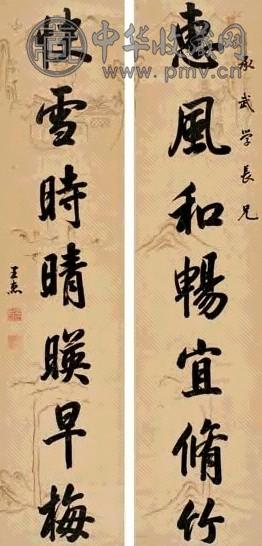 中华收藏网
www.pmv.cn
承武学長兄
惠風和暢宜脩竹
快雪時晴暎早梅
王杰